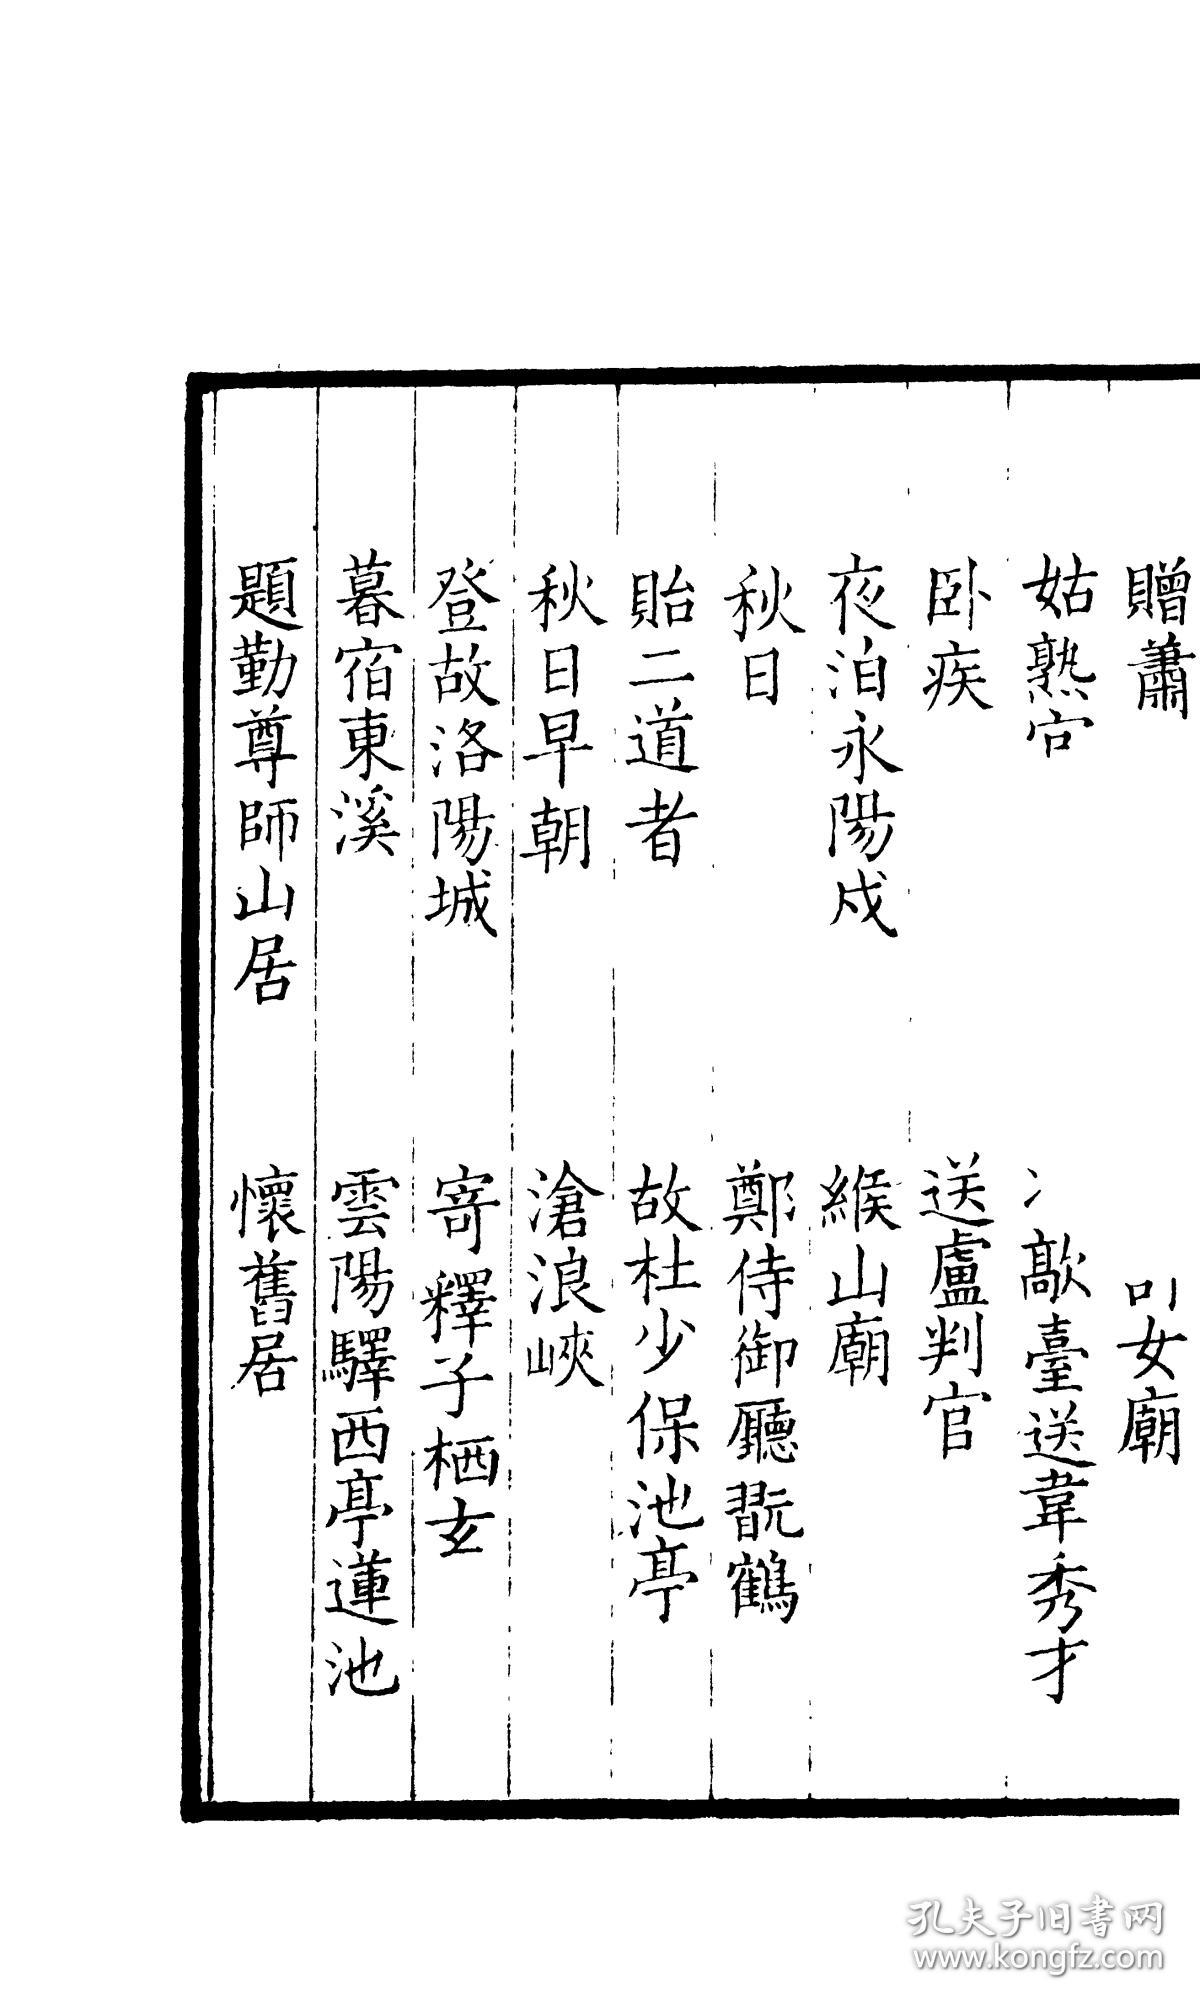 贈蕭
女廟
姑熟官
歊臺送韋秀才
卧疾
送盧判官
夜泊永陽戍
緱山廟
秋日
鄭侍御廳翫鶴
貽二道者
故杜少保池亭
秋日早朝
滄浪峽
登故洛陽城
寄釋子栖玄
暮宿東溪
雲陽驛西亭蓮池
題勤尊師山居
懷舊居
孔夫子旧書网
www.kongfz.com